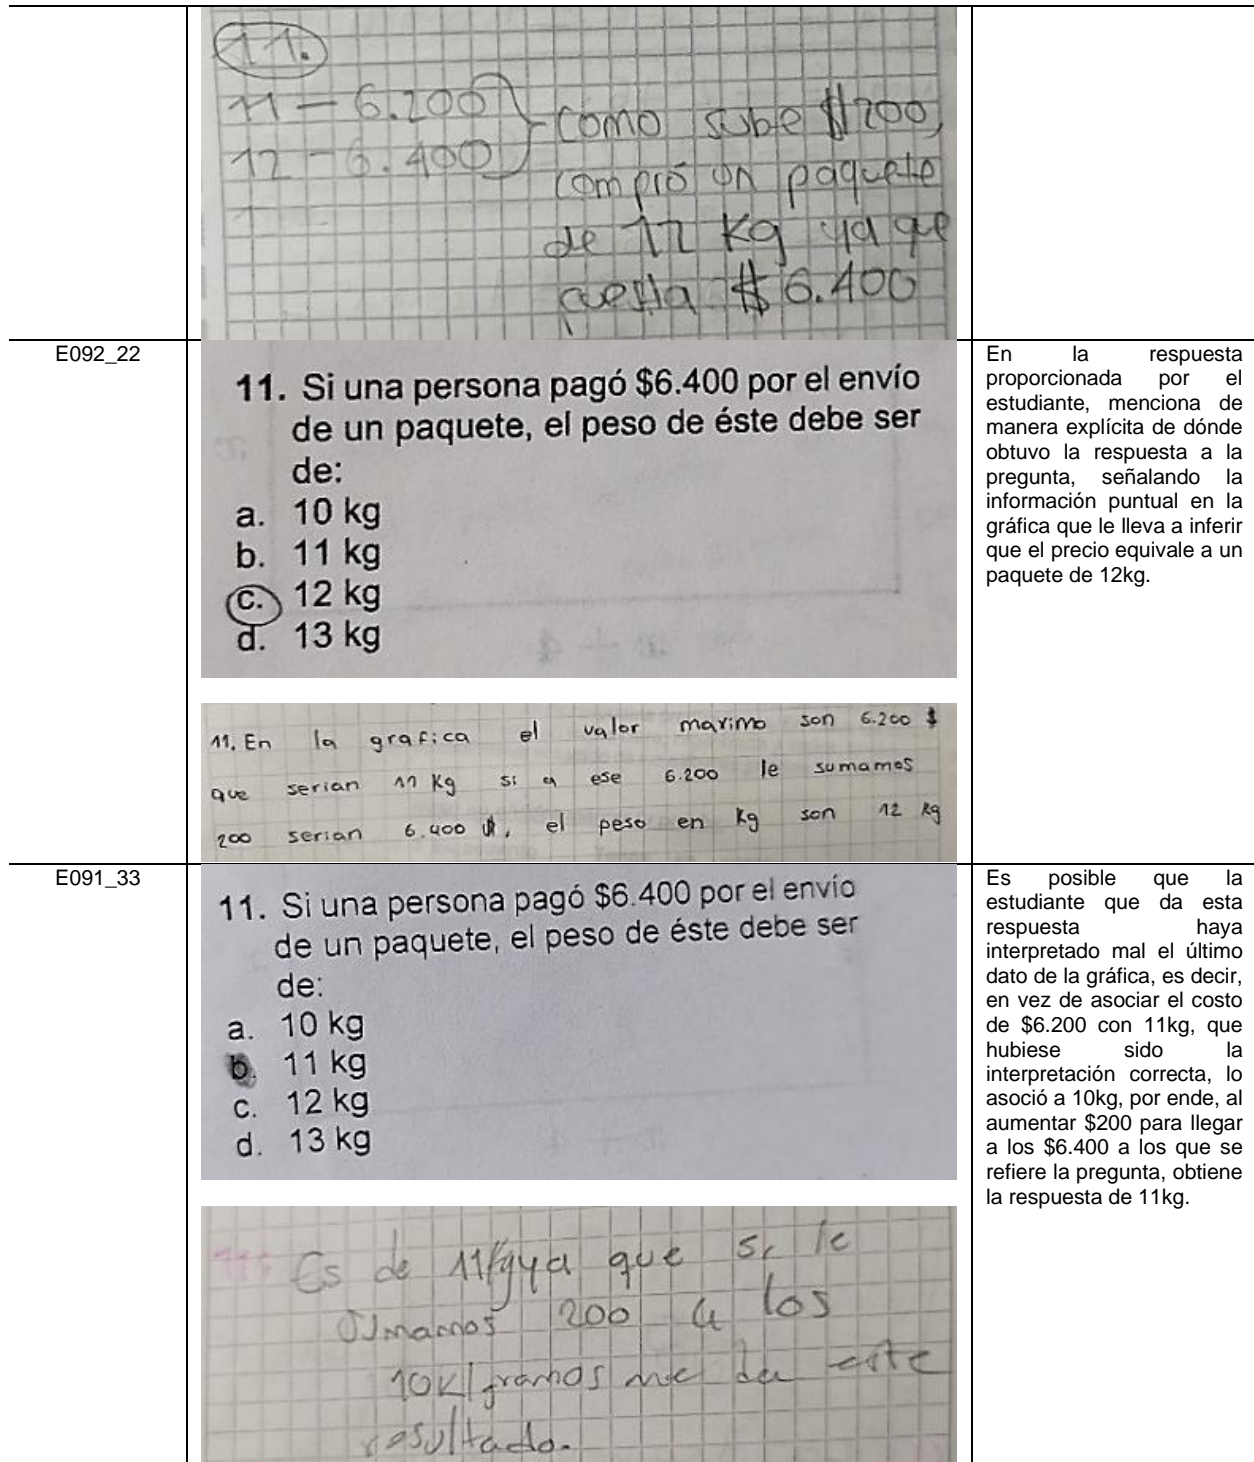 11.
11 - 6.200
12 - 6.400
Como sube $200,
compró un paquete
de 12 kg ya que
cuesta $6.400
E092_22
11. Si una persona pagó $6.400 por el envío
de un paquete, el peso de éste debe ser
de:
a. 10 kg
b. 11 kg
c. 12 kg
d. 13 kg
11. En la grafica el valor maximo son 6.200 $
que serian 11 Kg si a ese 6.200 le sumamos
200 serian 6.400 $, el peso en kg son 12 kg
En la respuesta
proporcionada por el
estudiante, menciona de
manera explícita de dónde
obtuvo la respuesta a la
pregunta, señalando la
información puntual en la
gráfica que le lleva a inferir
que el precio equivale a un
paquete de 12kg.
E091_33
11. Si una persona pagó $6.400 por el envío
de un paquete, el peso de éste debe ser
de:
a. 10 kg
b. 11 kg
c. 12 kg
d. 13 kg
Es de 11kg ya que si le
sumamos 200 a los
10 me da este
resultado.
Es posible que la
estudiante que da esta
respuesta haya
interpretado mal el último
dato de la gráfica, es decir,
en vez de asociar el costo
de $6.200 con 11kg, que
hubiese sido la
interpretación correcta, lo
asoció a 10kg, por ende, al
aumentar $200 para llegar
a los $6.400 a los que se
refiere la pregunta, obtiene
la respuesta de 11kg.